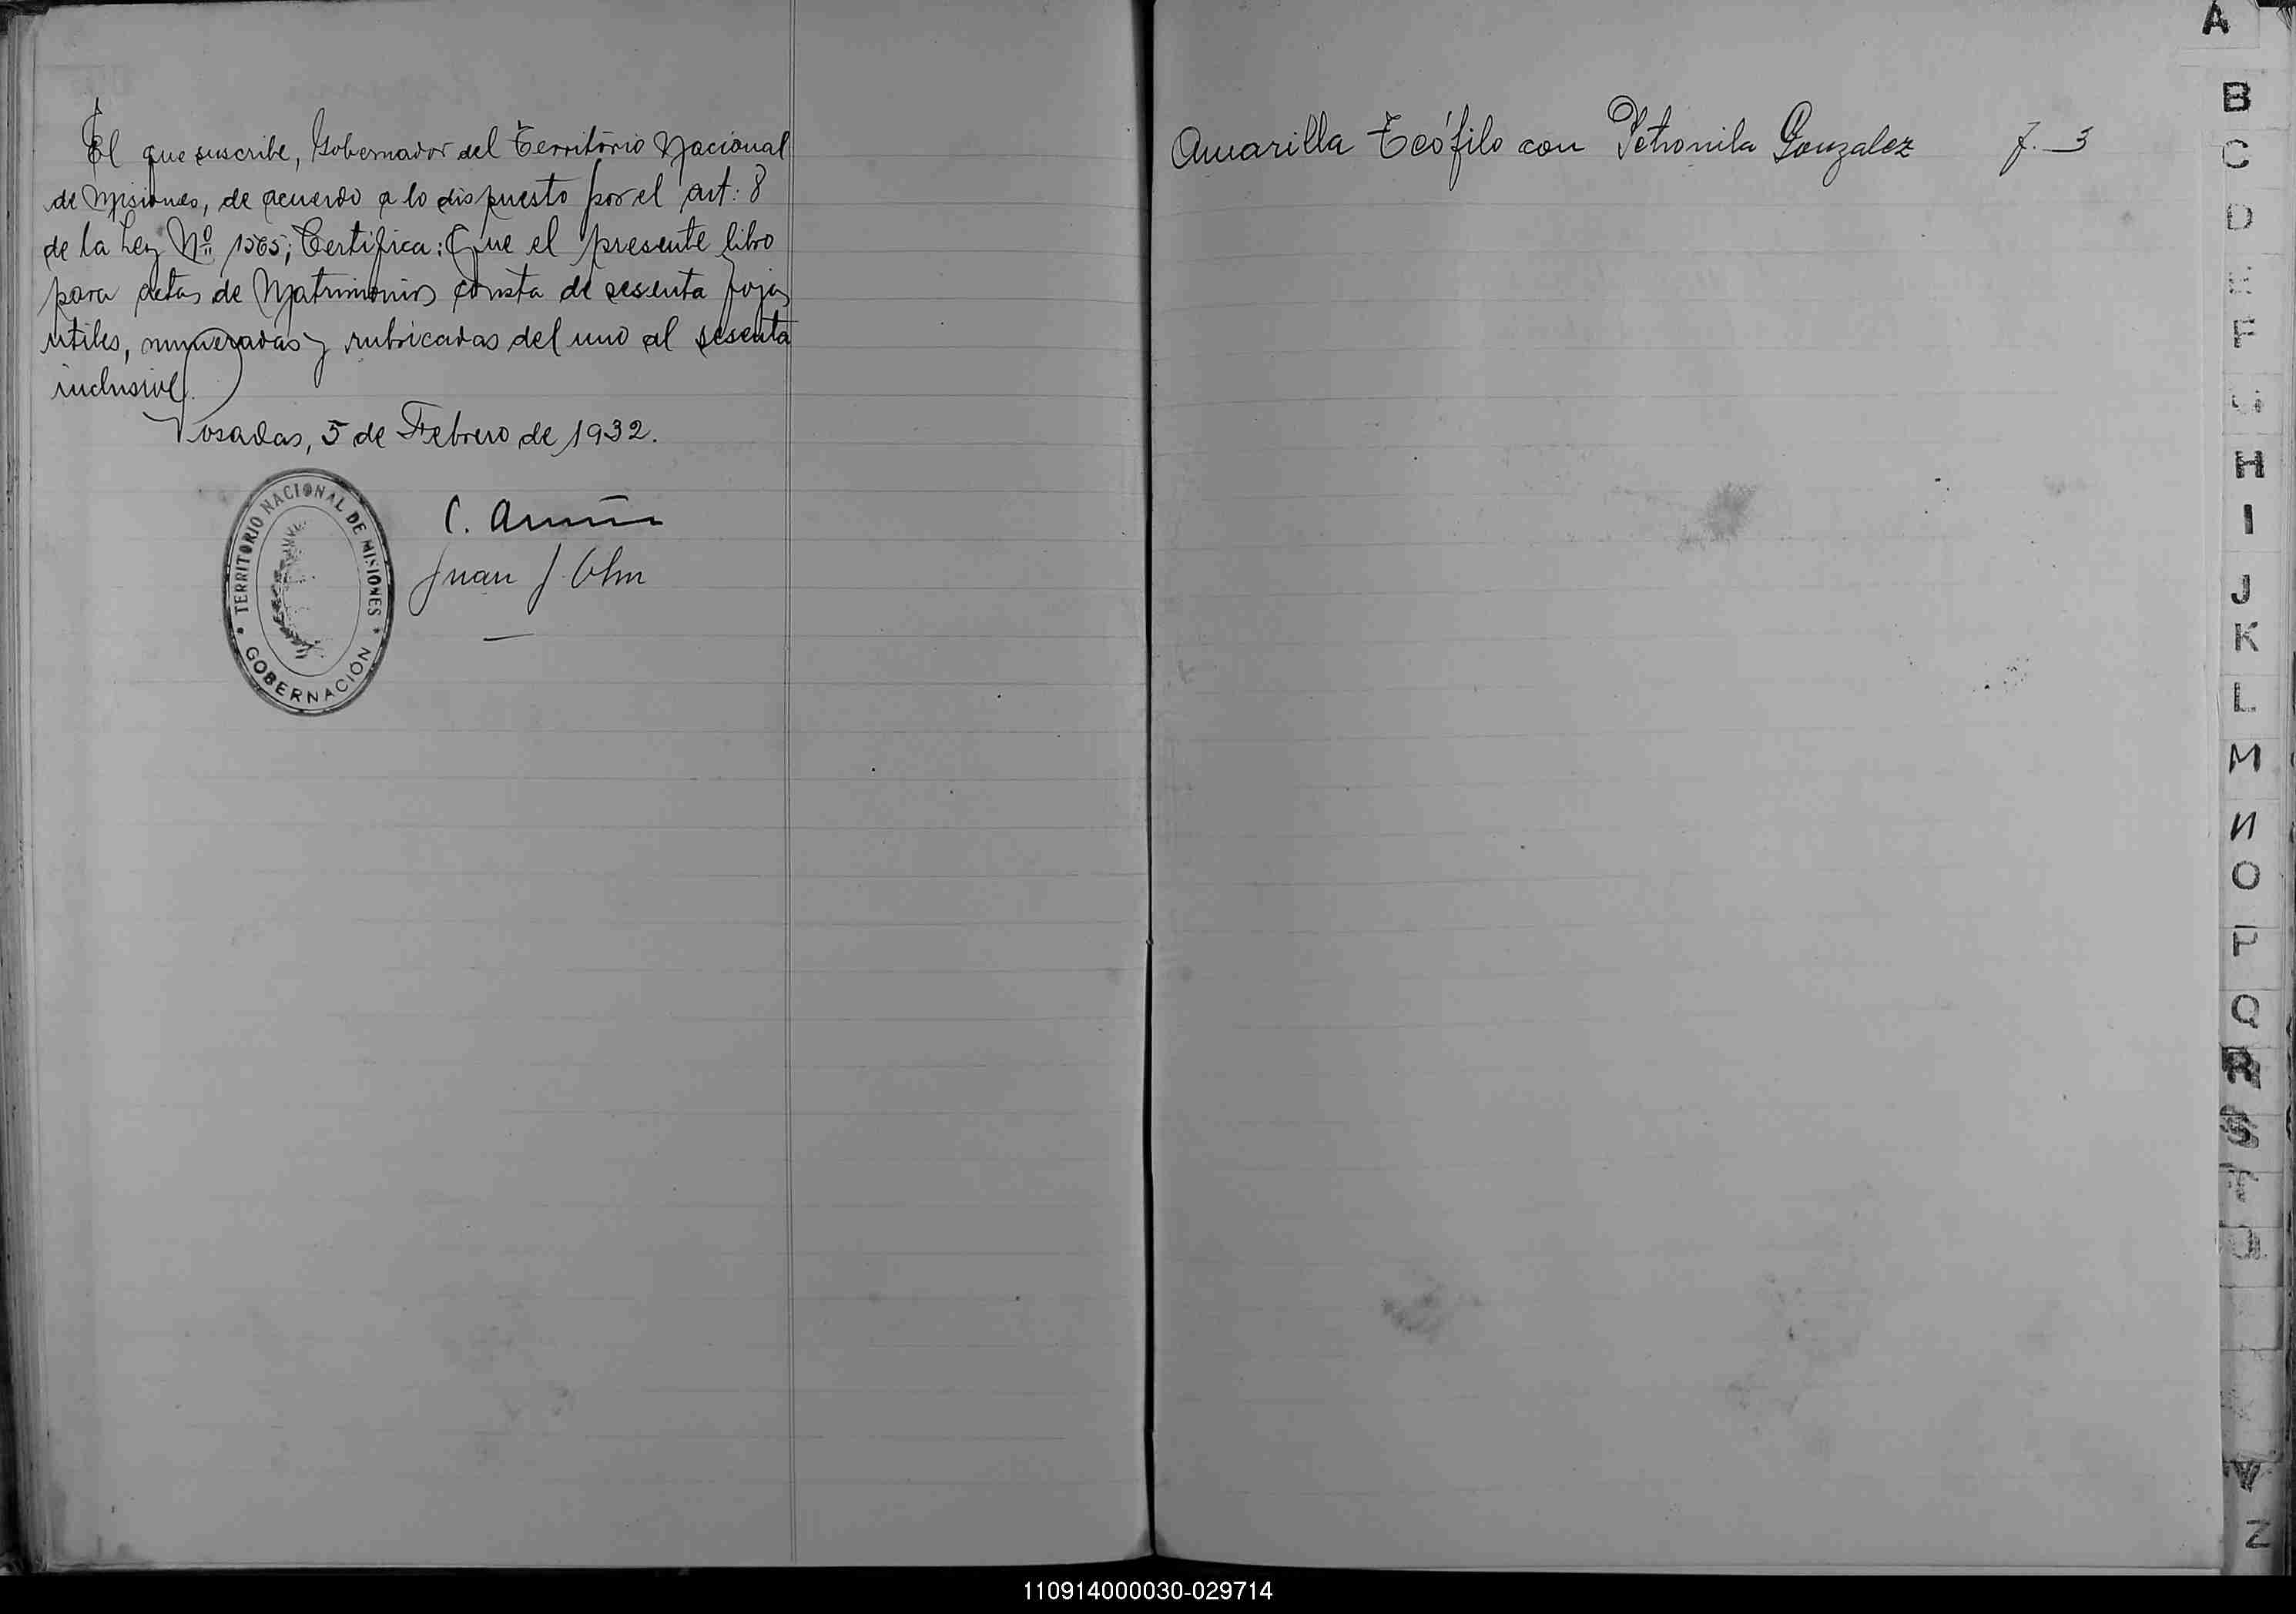 El que suscribe, Gobernador del Territorio Nacional
de Misiones, de acuerdo a lo dispuesto por el art: 8
de la Ley Nº 1565; Certifica: Que el presente libro
para actas de Matrimonios consta de sesenta fojas
utiles, numeradas y rubricadas del uno al sesenta
inclusive.
Posadas, 5 de Febrero de 1932.
TERRITORIO NACIONAL DE MISIONES
GOBERNACIÓN
C. 
Juan J.
Amarilla Teófilo con Petronila Gonzalez f. 3
A
B
C
D
E
F
G
H
I
J
K
L
M
N
O
P
Q
R
S
T
U
V
Z
110914000030-029714